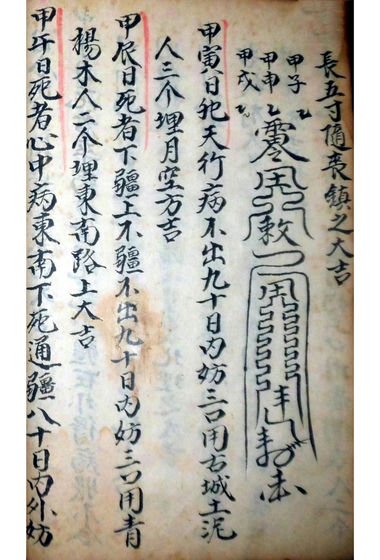 長五寸随喪鎮之大吉
甲子乙
甲申乙
甲戌乙
甲寅日死天行病不出九十日内妨三口用古城土泥
人三个埋月空方吉
甲辰日死者下疆上不疆不出九十日内妨三口用青
楊木人二个埋東南路上大吉
甲午日死者心中病東南下死通疆八十日内外妨